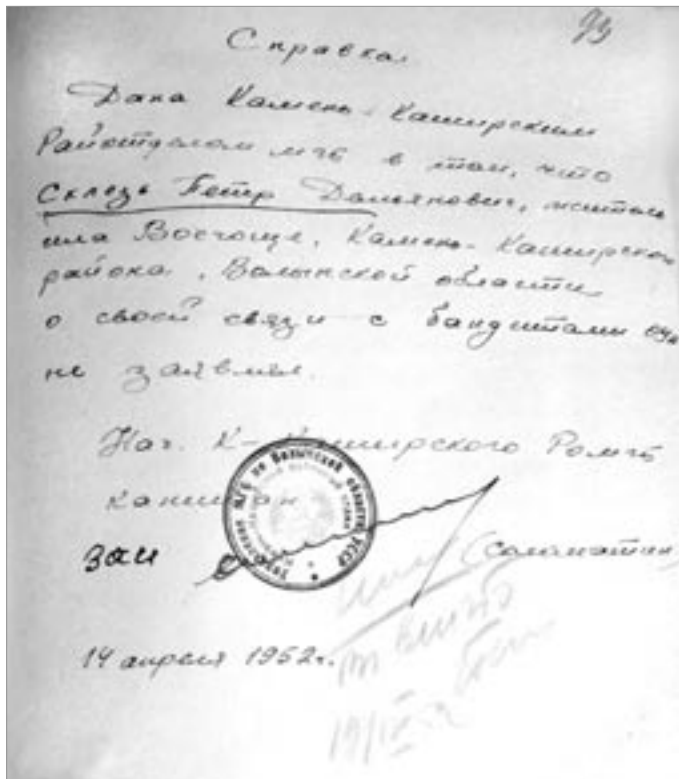 93
Справка
Дана Камень-Каширским
Райотделом МГБ в том, что
Склезь Петр Дамьянович, житель
села Восчоще, Камень-Каширского
района, Волынской области
о своей связи с бандитами
не заявлял.
Нач. К-Каширского РОМГБ
капитан
зам (Саламатин)
Управление МГБ по Волынской области УССР
14 апреля 1952 г.
19/IV